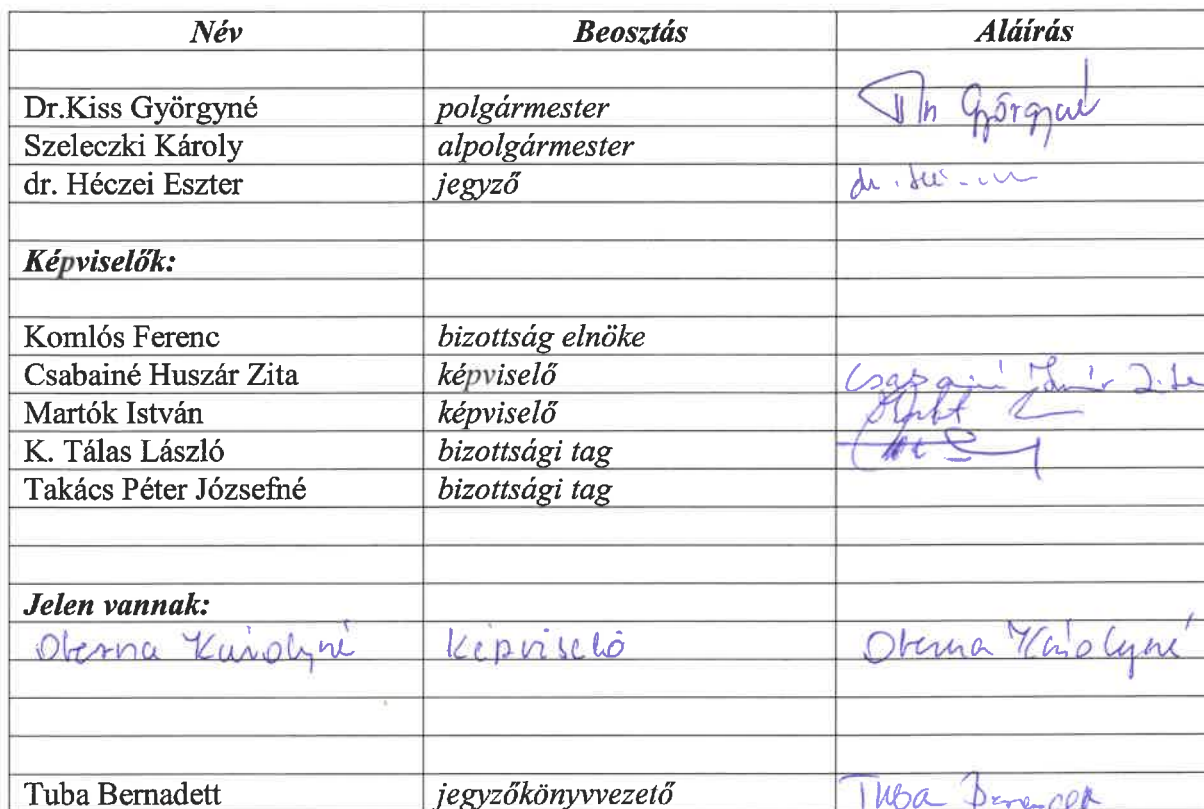 Név Beosztás Aláírás
Dr.Kiss Györgyné polgármester Györgyné
Szeleczki Károly alpolgármester
dr. Héczei Eszter jegyző dr.
Képviselők:
Komlós Ferenc bizottság elnöke
Csabainé Huszár Zita képviselő Csabainé Huszár Zita
Martók István képviselő
K. Tálas László bizottsági tag
Takács Péter Józsefné bizottsági tag
Jelen vannak:
Oberna Károlyné képviselő Oberna Károlyné
Tuba Bernadett jegyzőkönyvvezető Tuba Bernadett